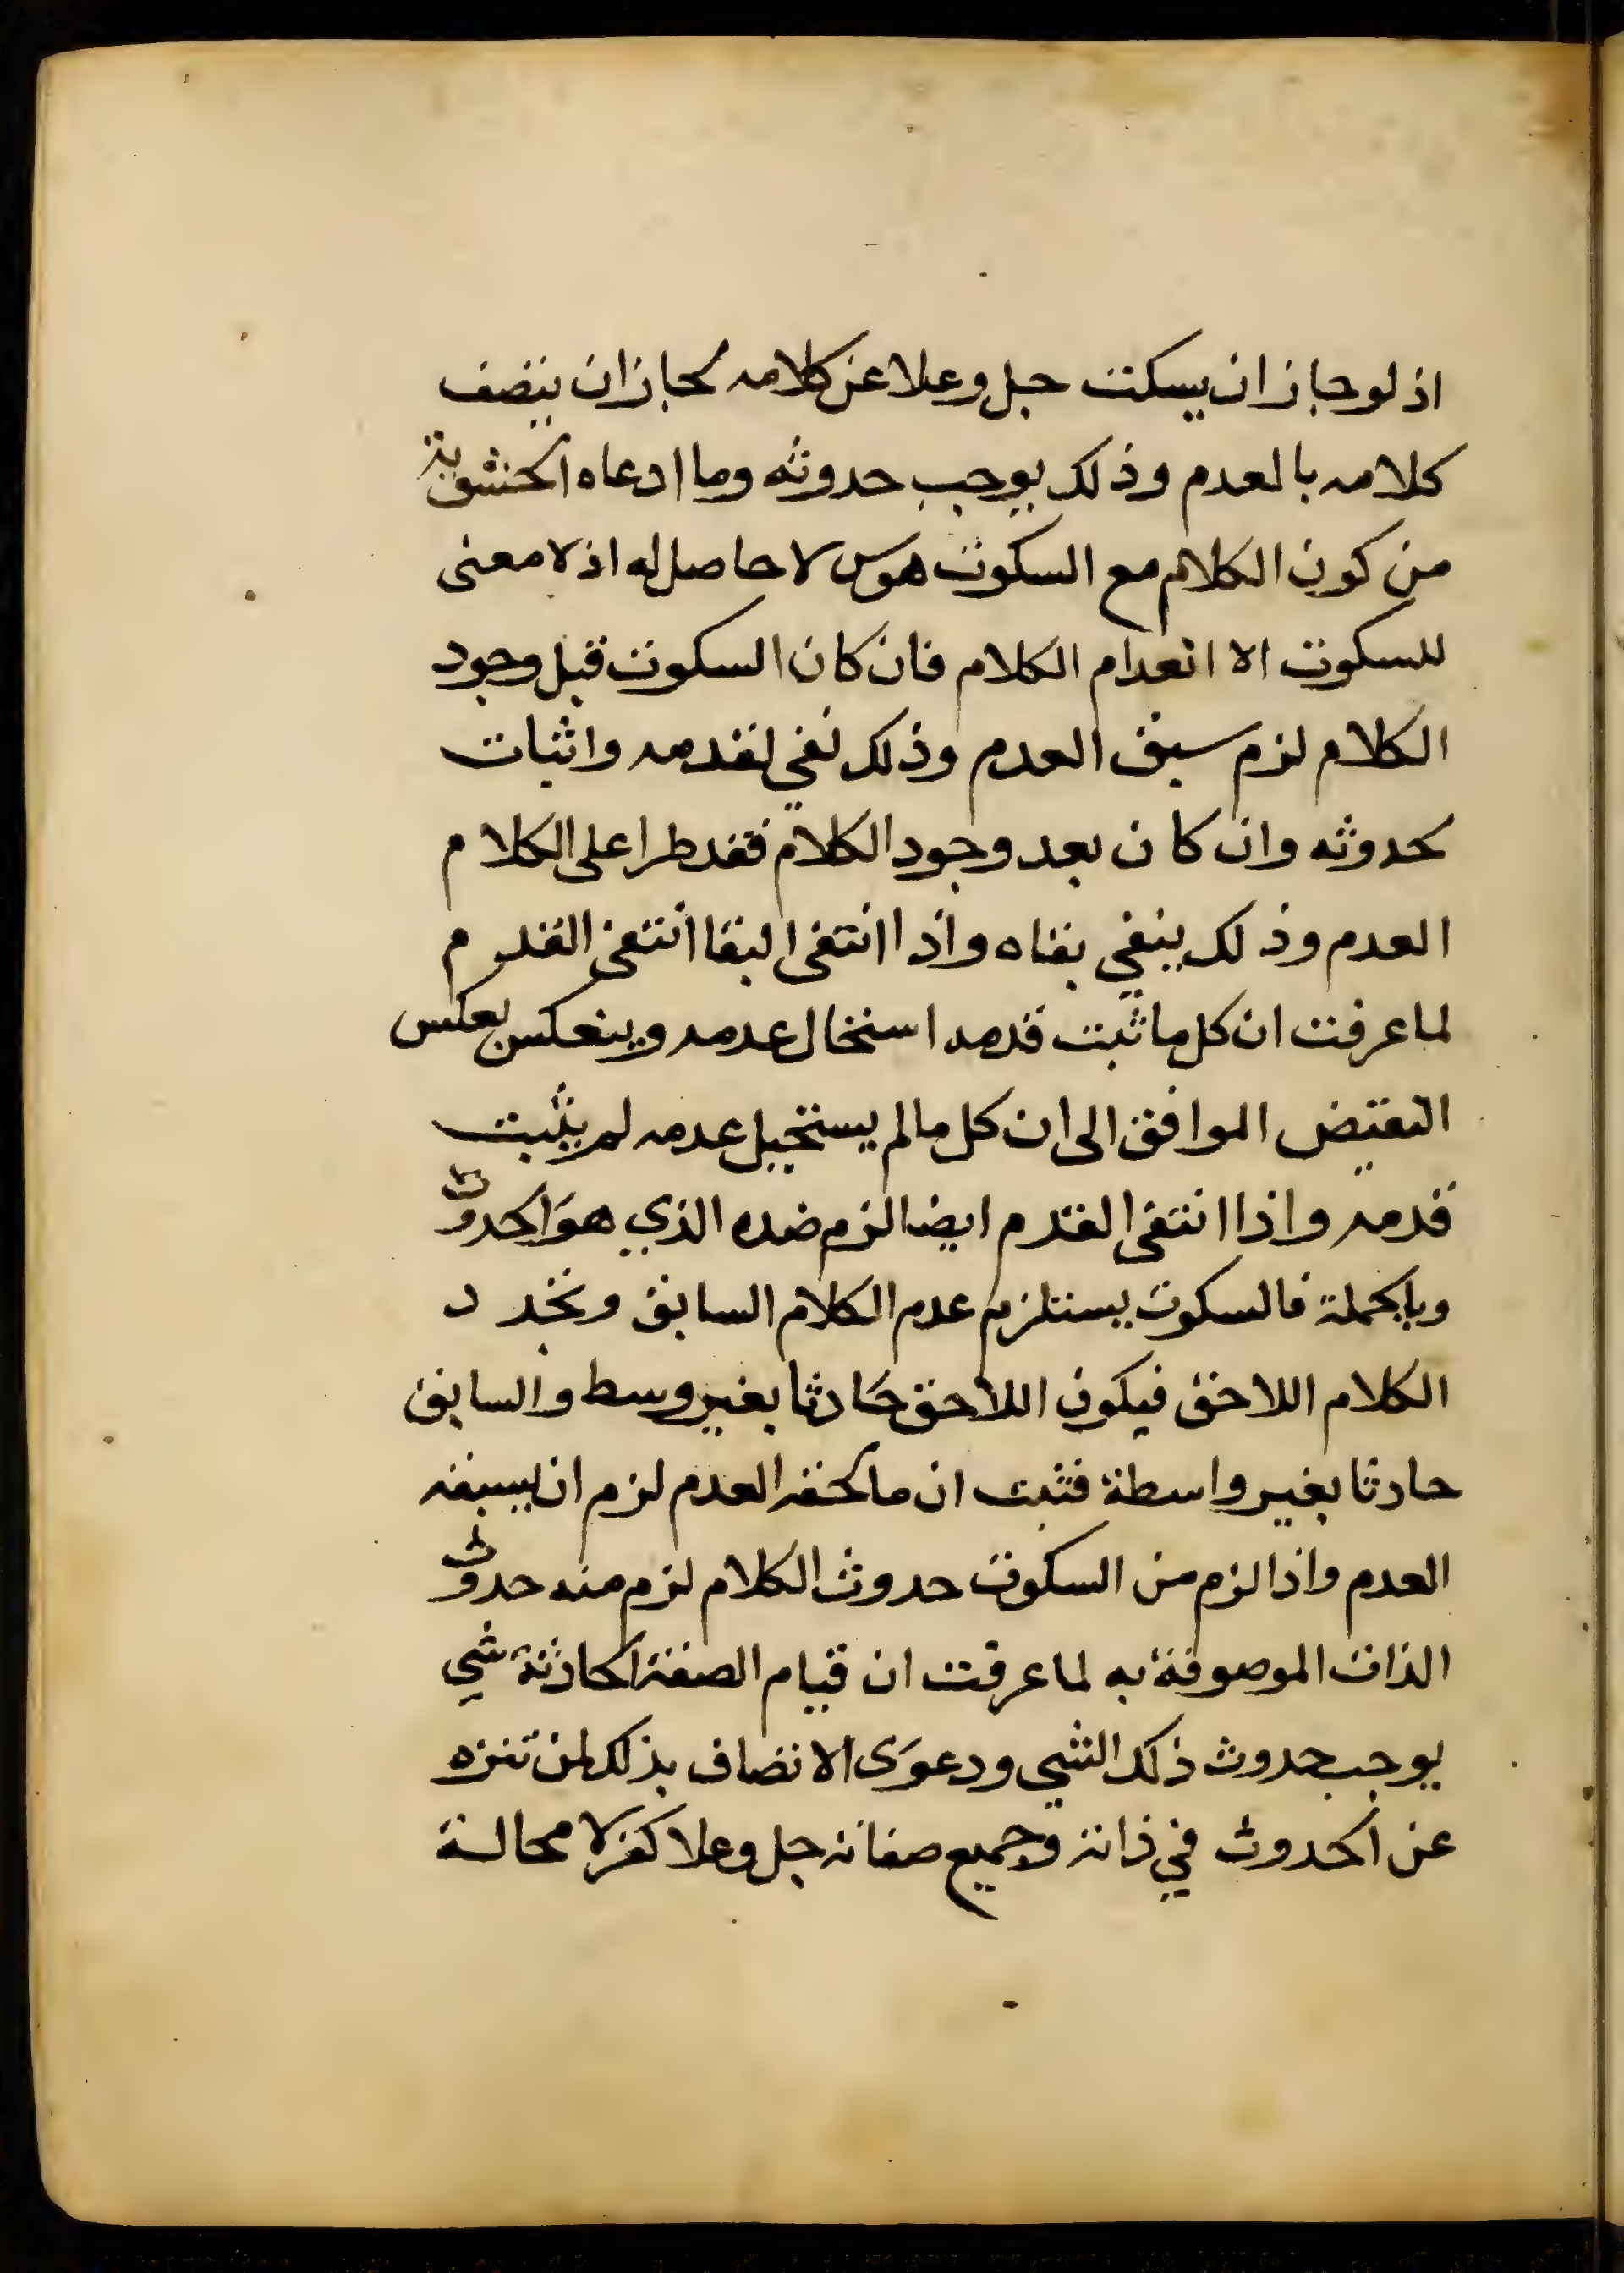 اذ لو جاز ان يسكت جل وعلا عن كلامه لجاز ان يتصف
كلامه بالعدم وذلك يوجب حدوثه وما ادعاه الحشوية
من كون الكلام مع السكوت هوس لا حاصل له اذ لا معنى
للسكوت الا انعدام الكلام فان كان السكوت قبل وجود
الكلام لزم سبق العدم وذلك نفي لقدمه واثبات
لحدوثه وان كان بعد وجود الكلام فقد طرا على الكلام
العدم وذلك ينفي بقاه واذا انتفى البقا انتفى القدم
لما عرفت ان كل ما ثبت قدمه استحال عدمه وينعكس بعكس
النقيض الموافق الى ان كل ما لم يستحيل عدمه لم يثبت
قدمه واذا انتفى القدم ايضا لزم ضده الذي هو الحدوث
وبالجملة فالسكوت يستلزم عدم الكلام السابق وتجدد
الكلام اللاحق فيكون اللاحق حادثا بغير وسط والسابق
حادثا بغير واسطة فثبت ان ما لحقه العدم لزم ان يسبقه
العدم واذا لزم من السكوت حدوث الكلام لزم منه حدوث
الذات الموصوفة به لما عرفت ان قيام الصفة الحادثة شي
يوجب حدوث ذلك الشي ودعوى الاتصاف بذلك لمن تنزه
عن الحدوث في ذاته وجميع صفاته جل وعلا كفر لا محالة